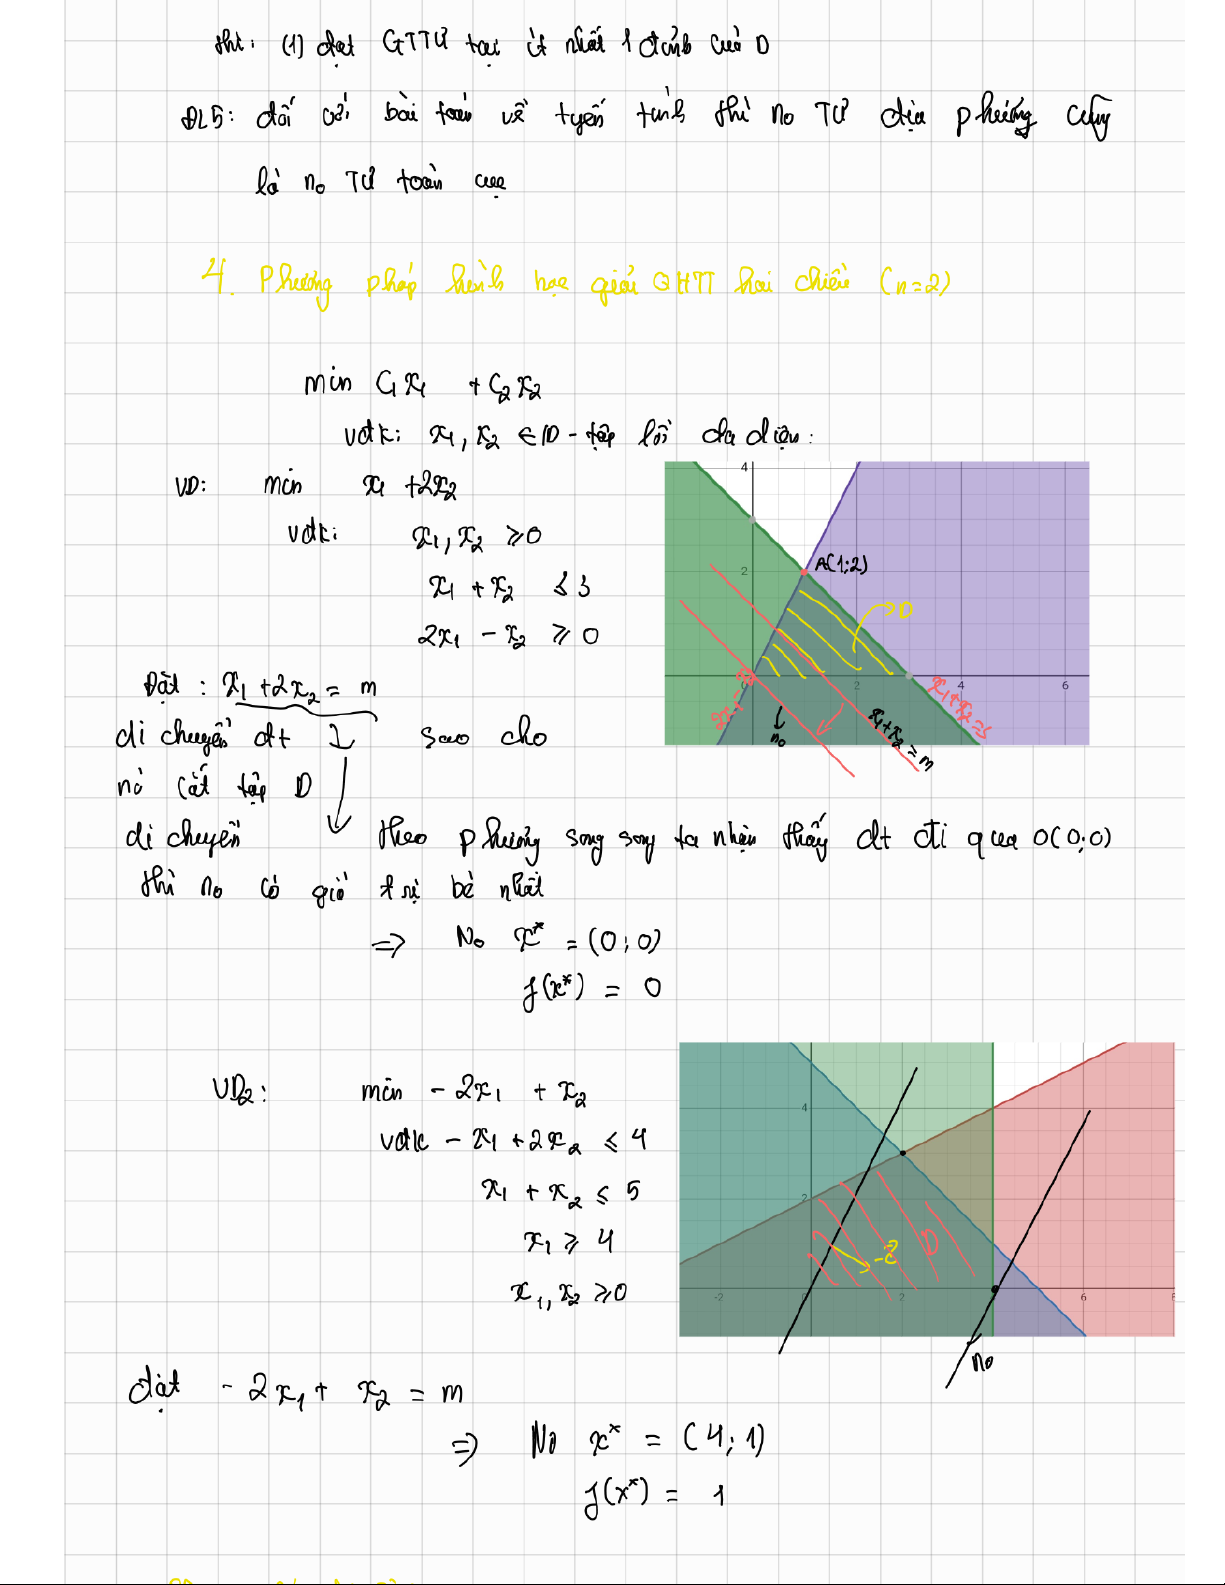 thì: (1) đạt GTTƯ tại ít nhất 1 đỉnh của D
ĐL5: đối với bài toán về tuyến tính thì no TƯ địa phương cũng
là no TƯ toàn cục
4. Phương pháp hình học giải QHTT hai chiều (n=2)
min C₁x₁ + C₂x₂
vđk: x₁, x₂ ∈ D - tập lồi đa diện:
VD: min x₁ + 2x₂
vđk: x₁, x₂ ≥ 0
x₁ + x₂ ≤ 3
2x₁ - x₂ ≥ 0
4
2
2
4
6
A(1;2)
D
x₁+x₂=3
x₁+x₂=m
no
Đặt : x₁ + 2x₂ = m
di chuyển đt ↓ sao cho
nó cắt tập D
di chuyển theo phương song song ta nhận thấy đt đi qua O(0;0)
thì no có giá trị bé nhất
⇒ No x* = (0; 0)
f(x*) = 0
VD₂: min - 2x₁ + x₂
vđk - x₁ + 2x₂ ≤ 4
x₁ + x₂ ≤ 5
x₁ ≥ 4
x₁, x₂ ≥ 0
4
2
-2
0
2
6
8
-2
D
no
đặt - 2x₁ + x₂ = m
⇒ No x* = (4; 1)
f(x*) = 1